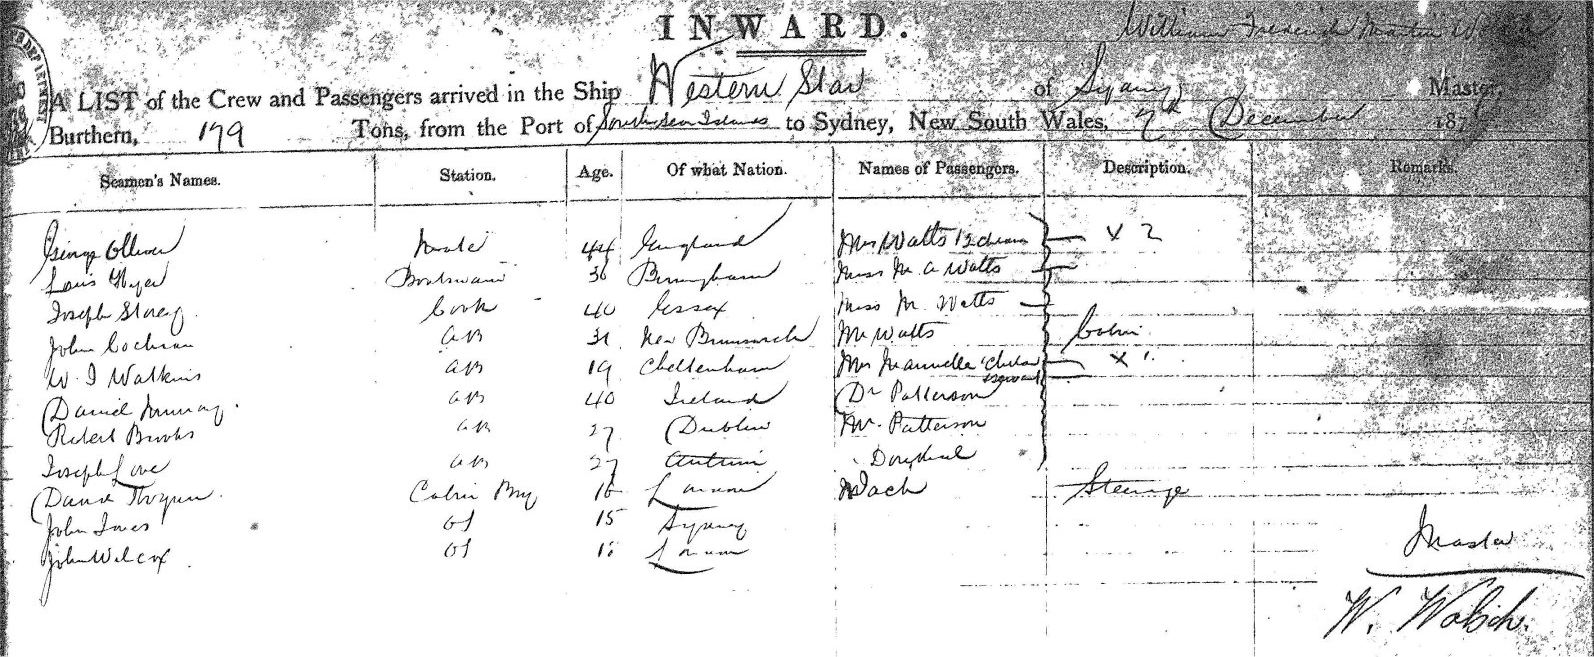 INWARD.
William Frederick
A LIST of the Crew and Passengers arrived in the Ship Western Star of Sydney Master,
Burthern, 179 Tons, from the Port of South Sea Islands to Sydney, New South Wales, 7th December 187
Seamen's Names. Station. Age. Of what Nation. Names of Passengers. Description. Remarks.
George Olliver Mate 44 England Mrs Watts & 2 X 2
Louis Boatswain 36 Birmingham Miss M. A Watts
Joseph Storey Cook 40 Essex Miss M. Watts
John Cochran AB 31 New Brunswick Mr Watts Cabin
W. J Watkins AB 19 Cheltenham Mrs X 1
servant
Daniel Murray AB 40 Ireland Dr Patterson
Robert Brooks AB 27 Dublin Mr. Patterson
Joseph Love AB 27 Antrim
David Cabin Boy 16 London Jack Steerage
John OS 15 Sydney
John Wilcox OS London
Master
W.